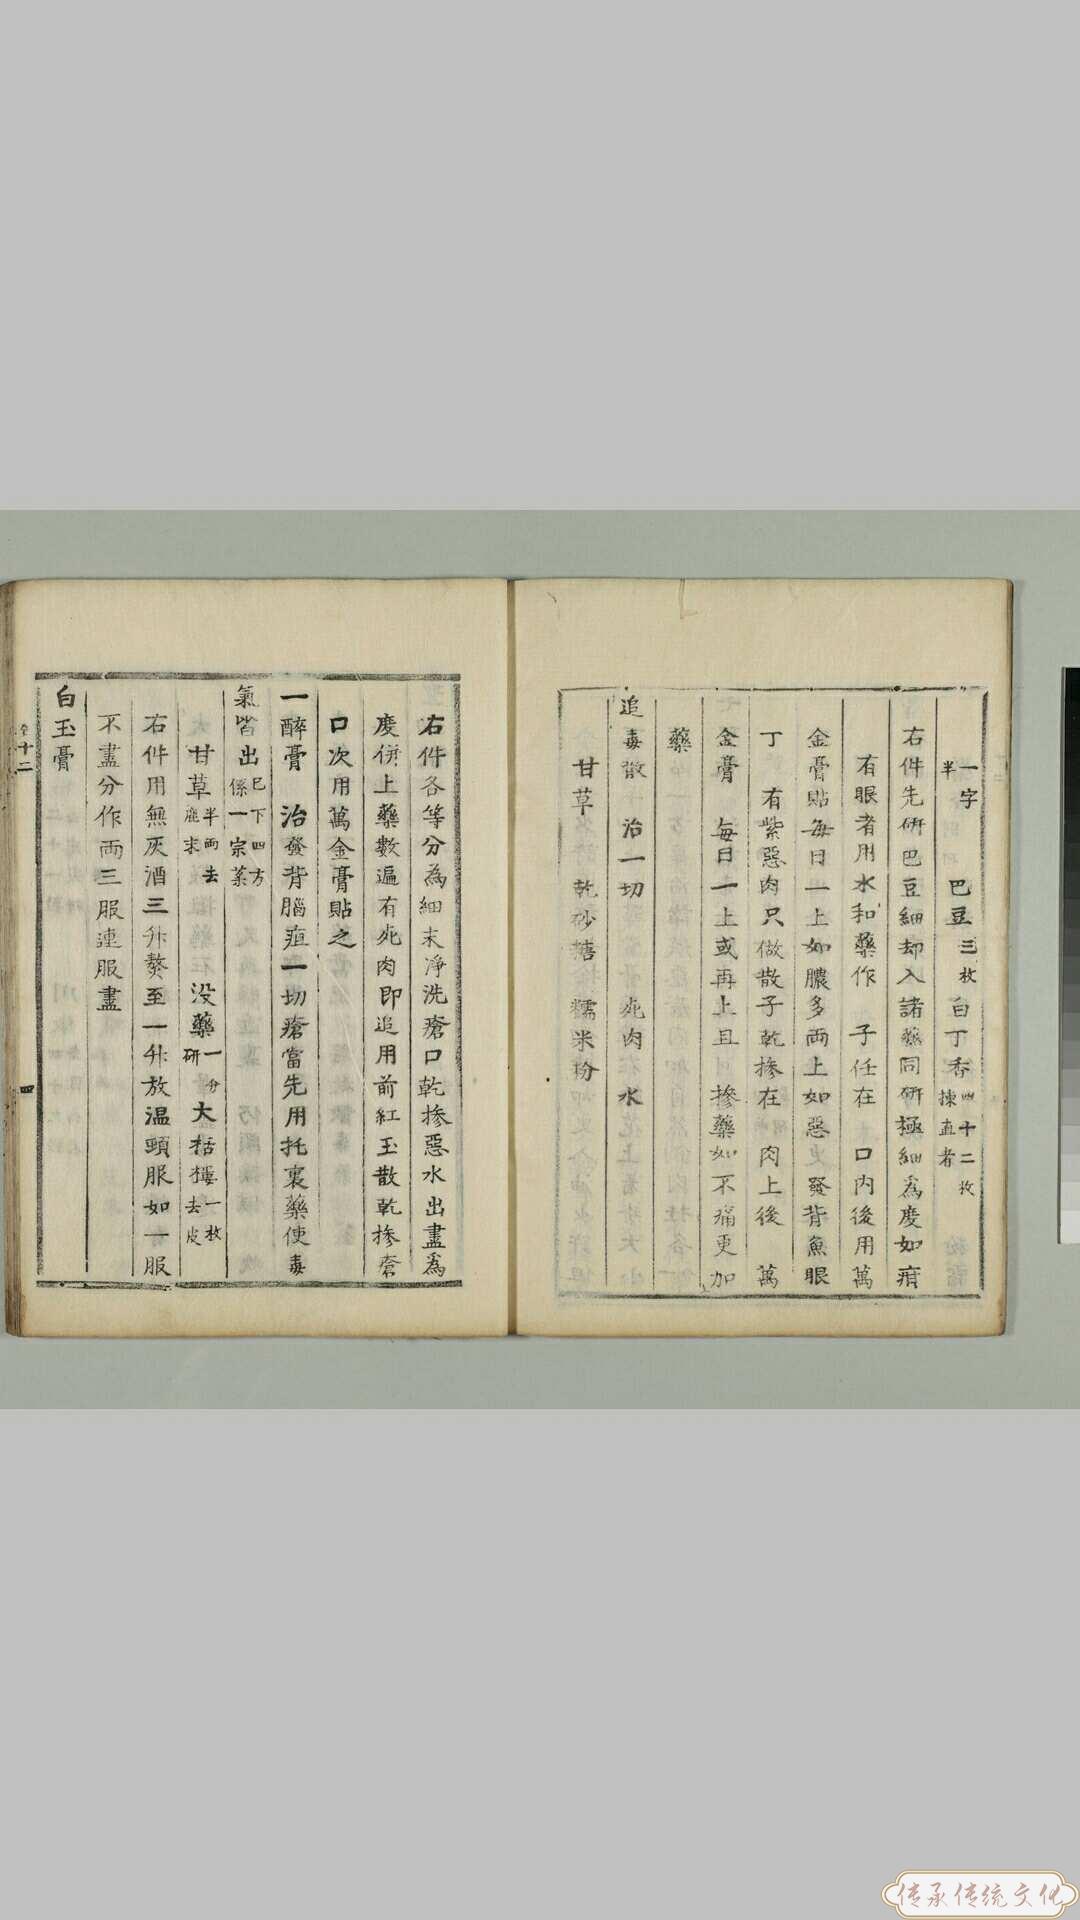 一字半 巴豆三枚 白丁香四十二枚揀直者
右件先研巴豆細却入諸藥同研極細爲度如瘡
有眼者用水和藥作 子任在 口内後用萬
金膏貼每日一上如膿多兩上如惡 發背魚眼
丁 有紫惡肉只做散子乾摻在 肉上後 萬
金膏 每日一上或再上且 摻藥如不痛更加
藥
追毒散 治一切 死肉 水
甘草 乾砂糖 糯米粉
右件各等分為細末淨洗瘡口乾摻惡水出盡爲
度併上藥數遍有死肉即追用前紅玉散乾摻瘡
口次用萬金膏貼之
一醉膏 治發背腦疽一切瘡當先用托裏藥使毒
氣皆出已下四方係一宗藥
甘草半兩去 没藥一分研 大栝蔞一枚去皮
右件用無灰酒三升熬至一升放温頓服如一服
不盡分作兩三服連服盡
白玉膏
卷十二 四
传承传统文化